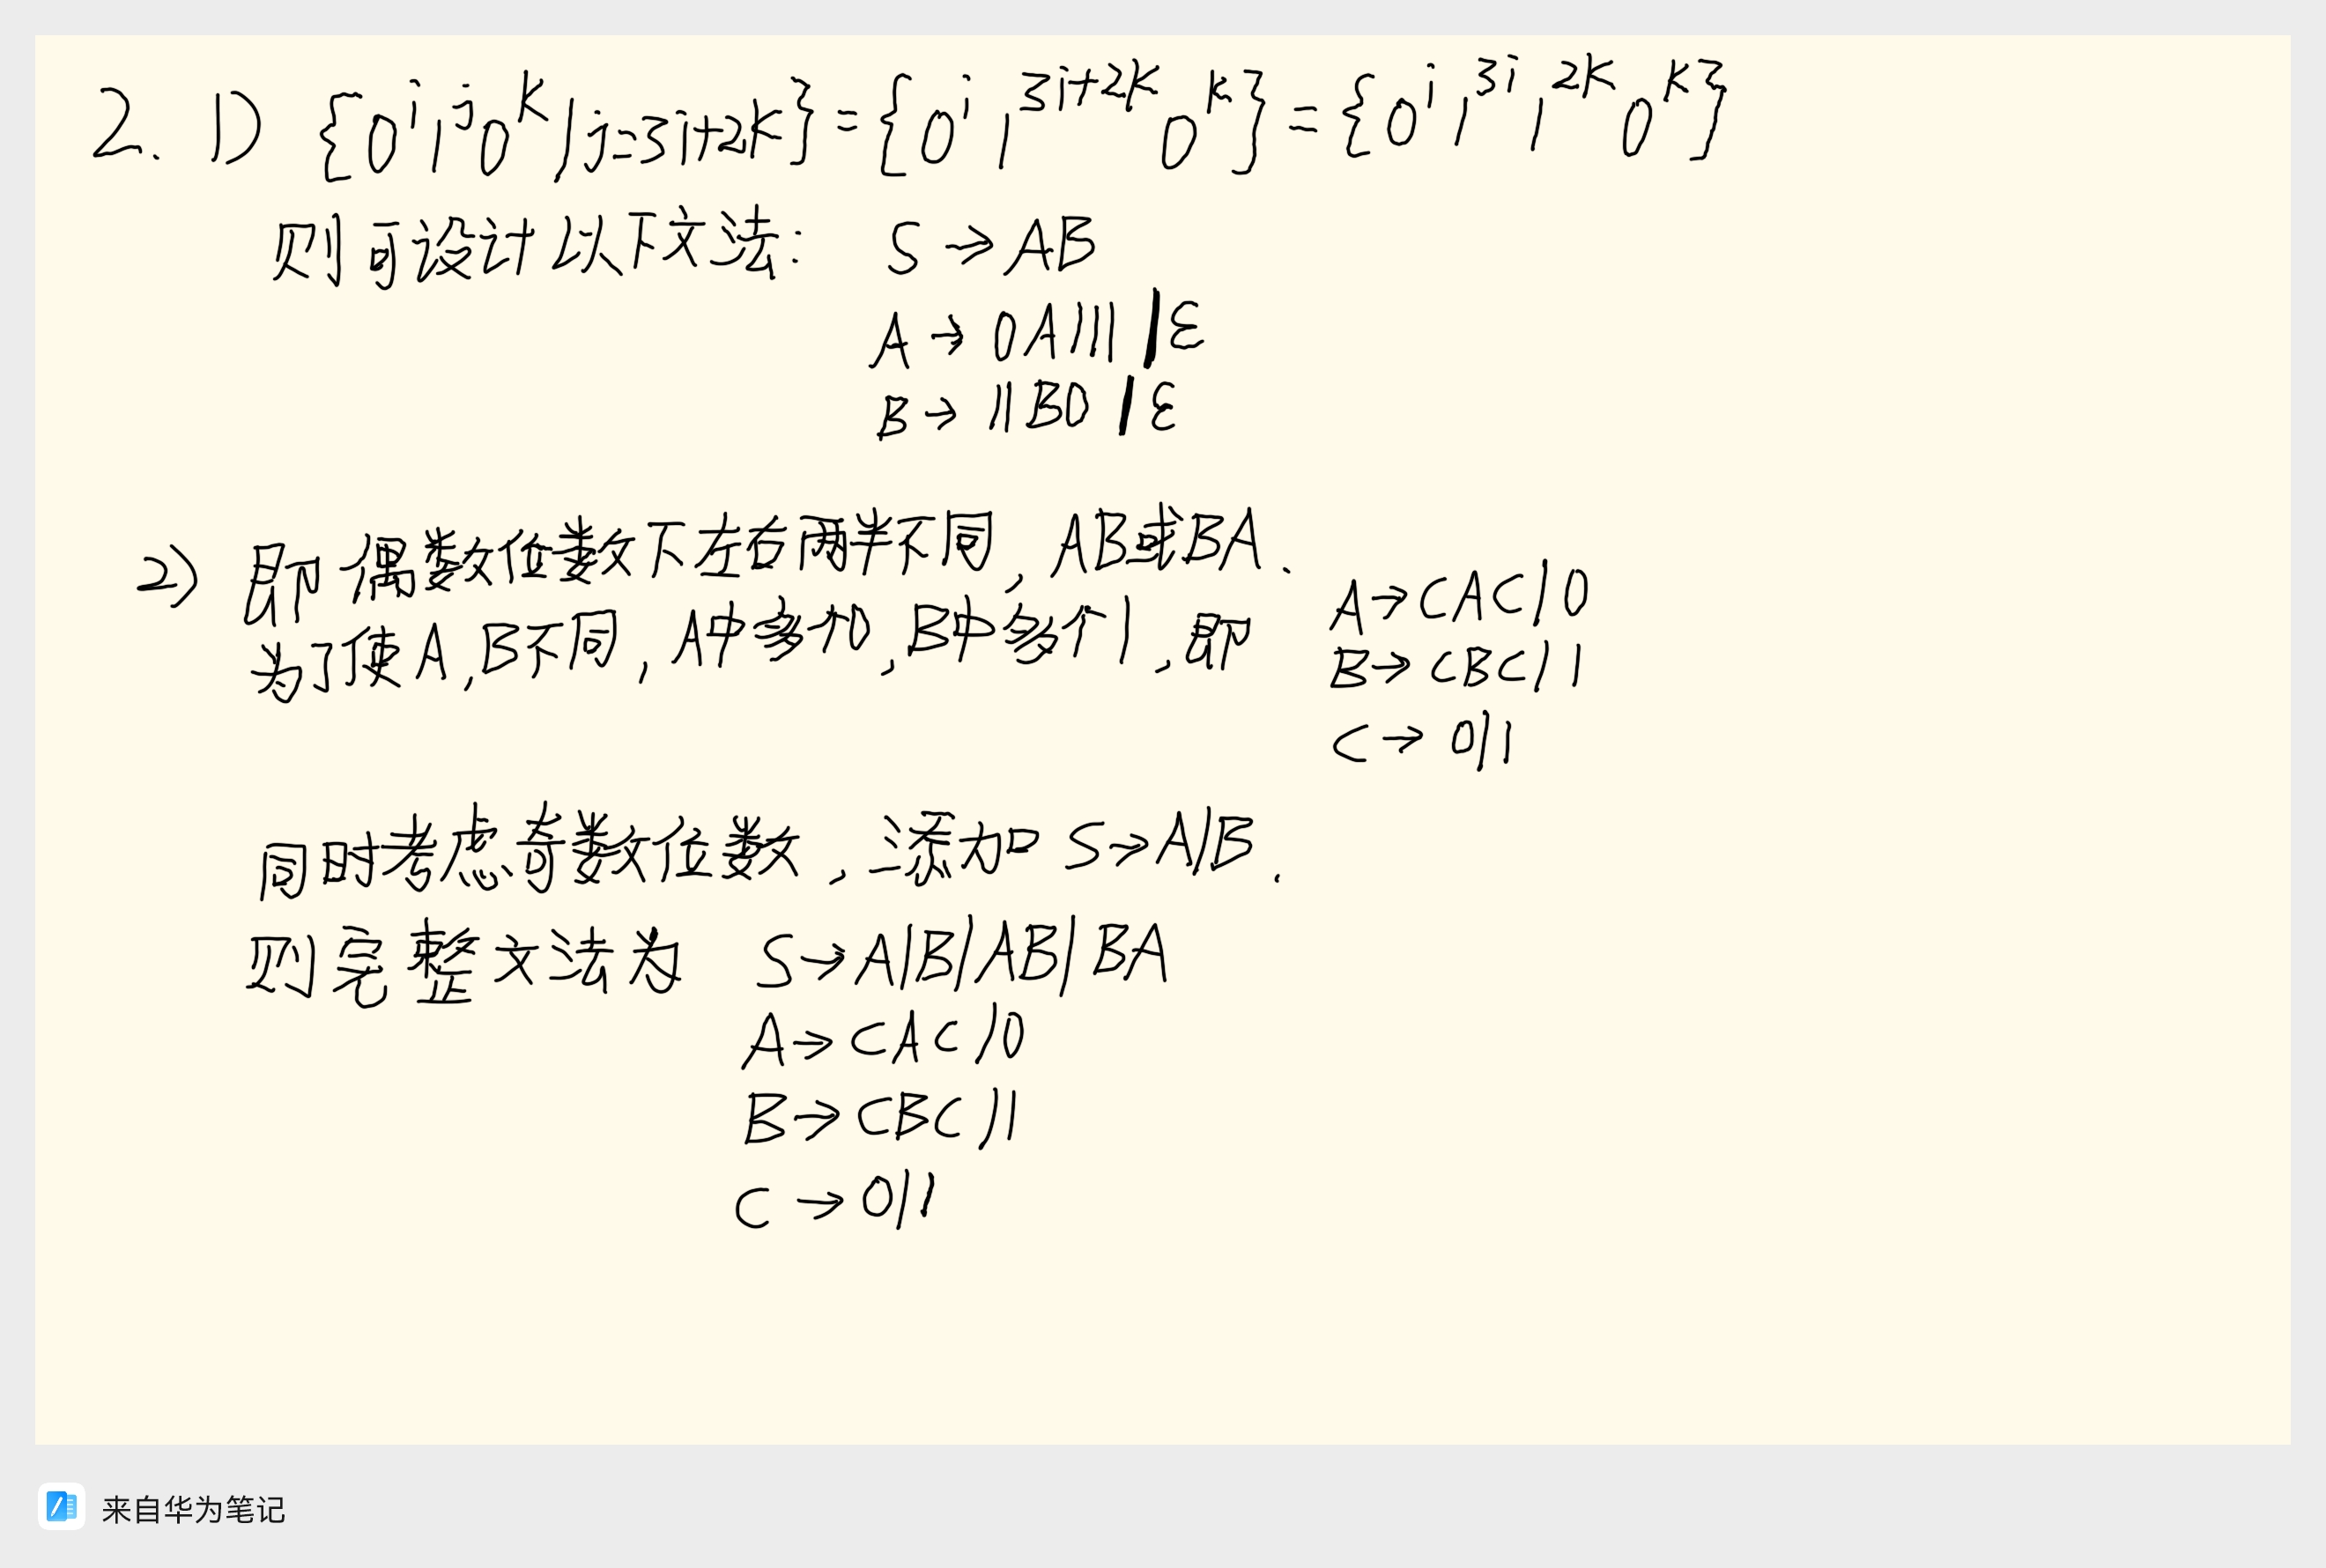 2. 1) {0^i 1^j 0^k | j=3i+2k} = {0^i 1^{3i+2k} 0^k} = {0^i 1^{3i} 1^{2k} 0^k}
则可设计以下文法: S→AB
A→0A111|ε
B→11B0|ε
2) 即偶数位数下左右两半不同, AB或BA.
为了使A,B不同, A中多个0, B中多个1, 即
A→CAC|0
B→CBC|1
C→0|1
同时考虑奇数位数, 添加 S→A|B.
则完整文法为 S→A|B|AB|BA
A→CAC|0
B→CBC|1
C→0|1
来自华为笔记